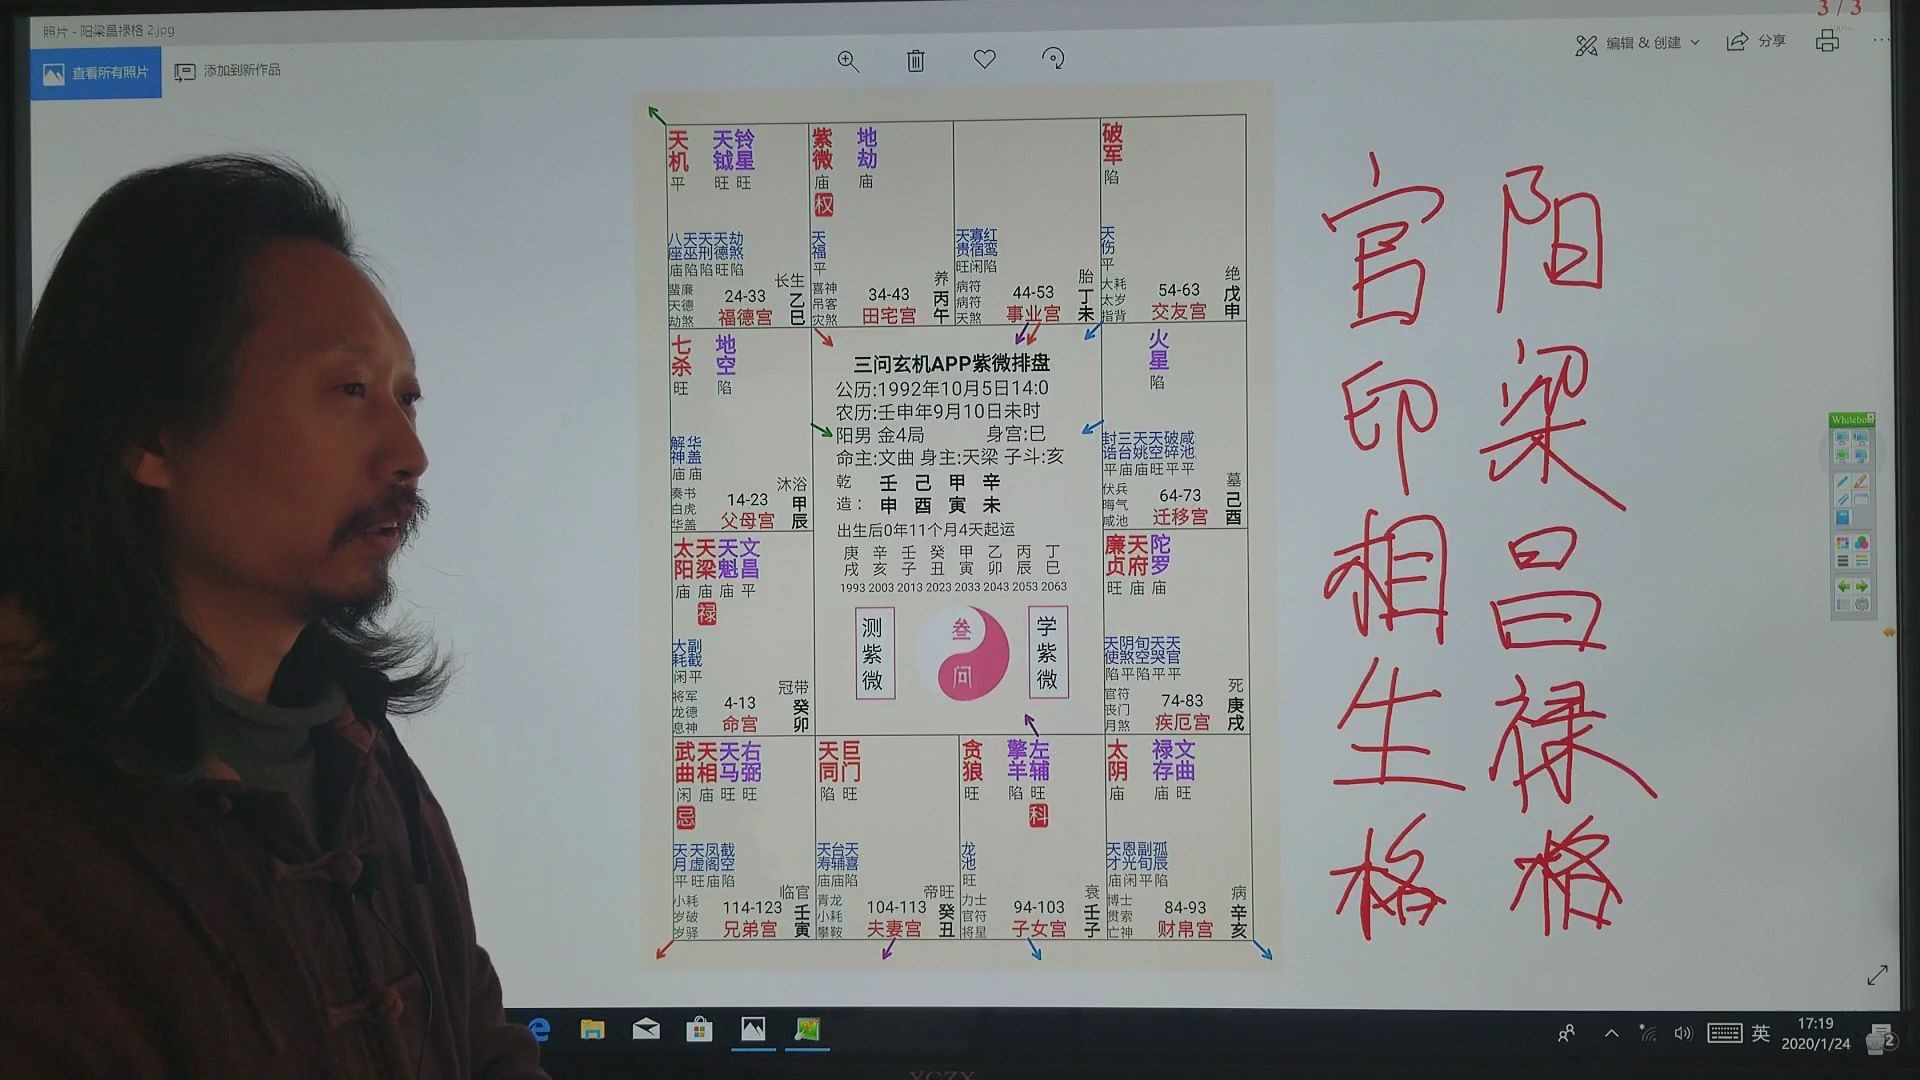 3 / 3
照片 - 阳梁昌禄格 2.jpg
查看所有照片
添加到新作品
编辑 & 创建
分享
天机 天钺 铃星
平 旺 旺
八座 天巫 天刑 天德 劫煞
庙 陷 陷 旺 陷
蜚廉
天德
劫煞
24-33
福德宫
长生
乙巳
紫微 地劫
庙 庙
权
天福
平
喜神
吊客
灾煞
34-43
田宅宫
养
丙午
天贵 寡宿 红鸾
旺 闲 陷
病符
病符
天煞
44-53
事业宫
胎
丁未
破军
陷
天伤
平
大耗
太岁
指背
54-63
交友宫
绝
戊申
七杀 地空
旺 陷
解神 华盖
庙 庙
奏书
白虎
华盖
14-23
父母宫
沐浴
甲辰
三问玄机APP紫微排盘
公历:1992年10月5日14:0
农历:壬申年9月10日未时
阳男 金4局 身宫:巳
命主:文曲 身主:天梁 子斗:亥
乾 壬 己 甲 辛
造: 申 酉 寅 未
出生后0年11个月4天起运
庚 辛 壬 癸 甲 乙 丙 丁
戌 亥 子 丑 寅 卯 辰 巳
1993 2003 2013 2023 2033 2043 2053 2063
测紫微
叁问
学紫微
火星
陷
封诰 三台 天姚 天空 破碎 咸池
平 庙 庙 旺 平 平
伏兵
晦气
咸池
64-73
迁移宫
墓
己酉
太阳 天梁 天魁 文昌
庙 庙 庙 平
禄
大耗 副截
闲 平
将军
龙德
息神
4-13
命宫
冠带
癸卯
廉贞 天府 陀罗
旺 庙 庙
天使 阴煞 旬空 天哭 天官
陷 平 陷 平 平
官符
丧门
月煞
74-83
疾厄宫
死
庚戌
武曲 天相 天马 右弼
闲 庙 旺 旺
忌
天月 天虚 凤阁 截空
平 旺 庙 陷
小耗
岁破
岁驿
114-123
兄弟宫
临官
壬寅
天同 巨门
陷 旺
天寿 台辅 天喜
庙 庙 陷
青龙
小耗
攀鞍
104-113
夫妻宫
帝旺
癸丑
贪狼 擎羊 左辅
旺 陷 旺
科
龙池
旺
力士
官符
将星
94-103
子女宫
衰
壬子
太阴 禄存 文曲
庙 庙 旺
天才 恩光 副旬 孤辰
庙 闲 平 陷
博士
贯索
亡神
84-93
财帛宫
病
辛亥
阳梁昌禄格
官印相生格
英
17:19
2020/1/24
2